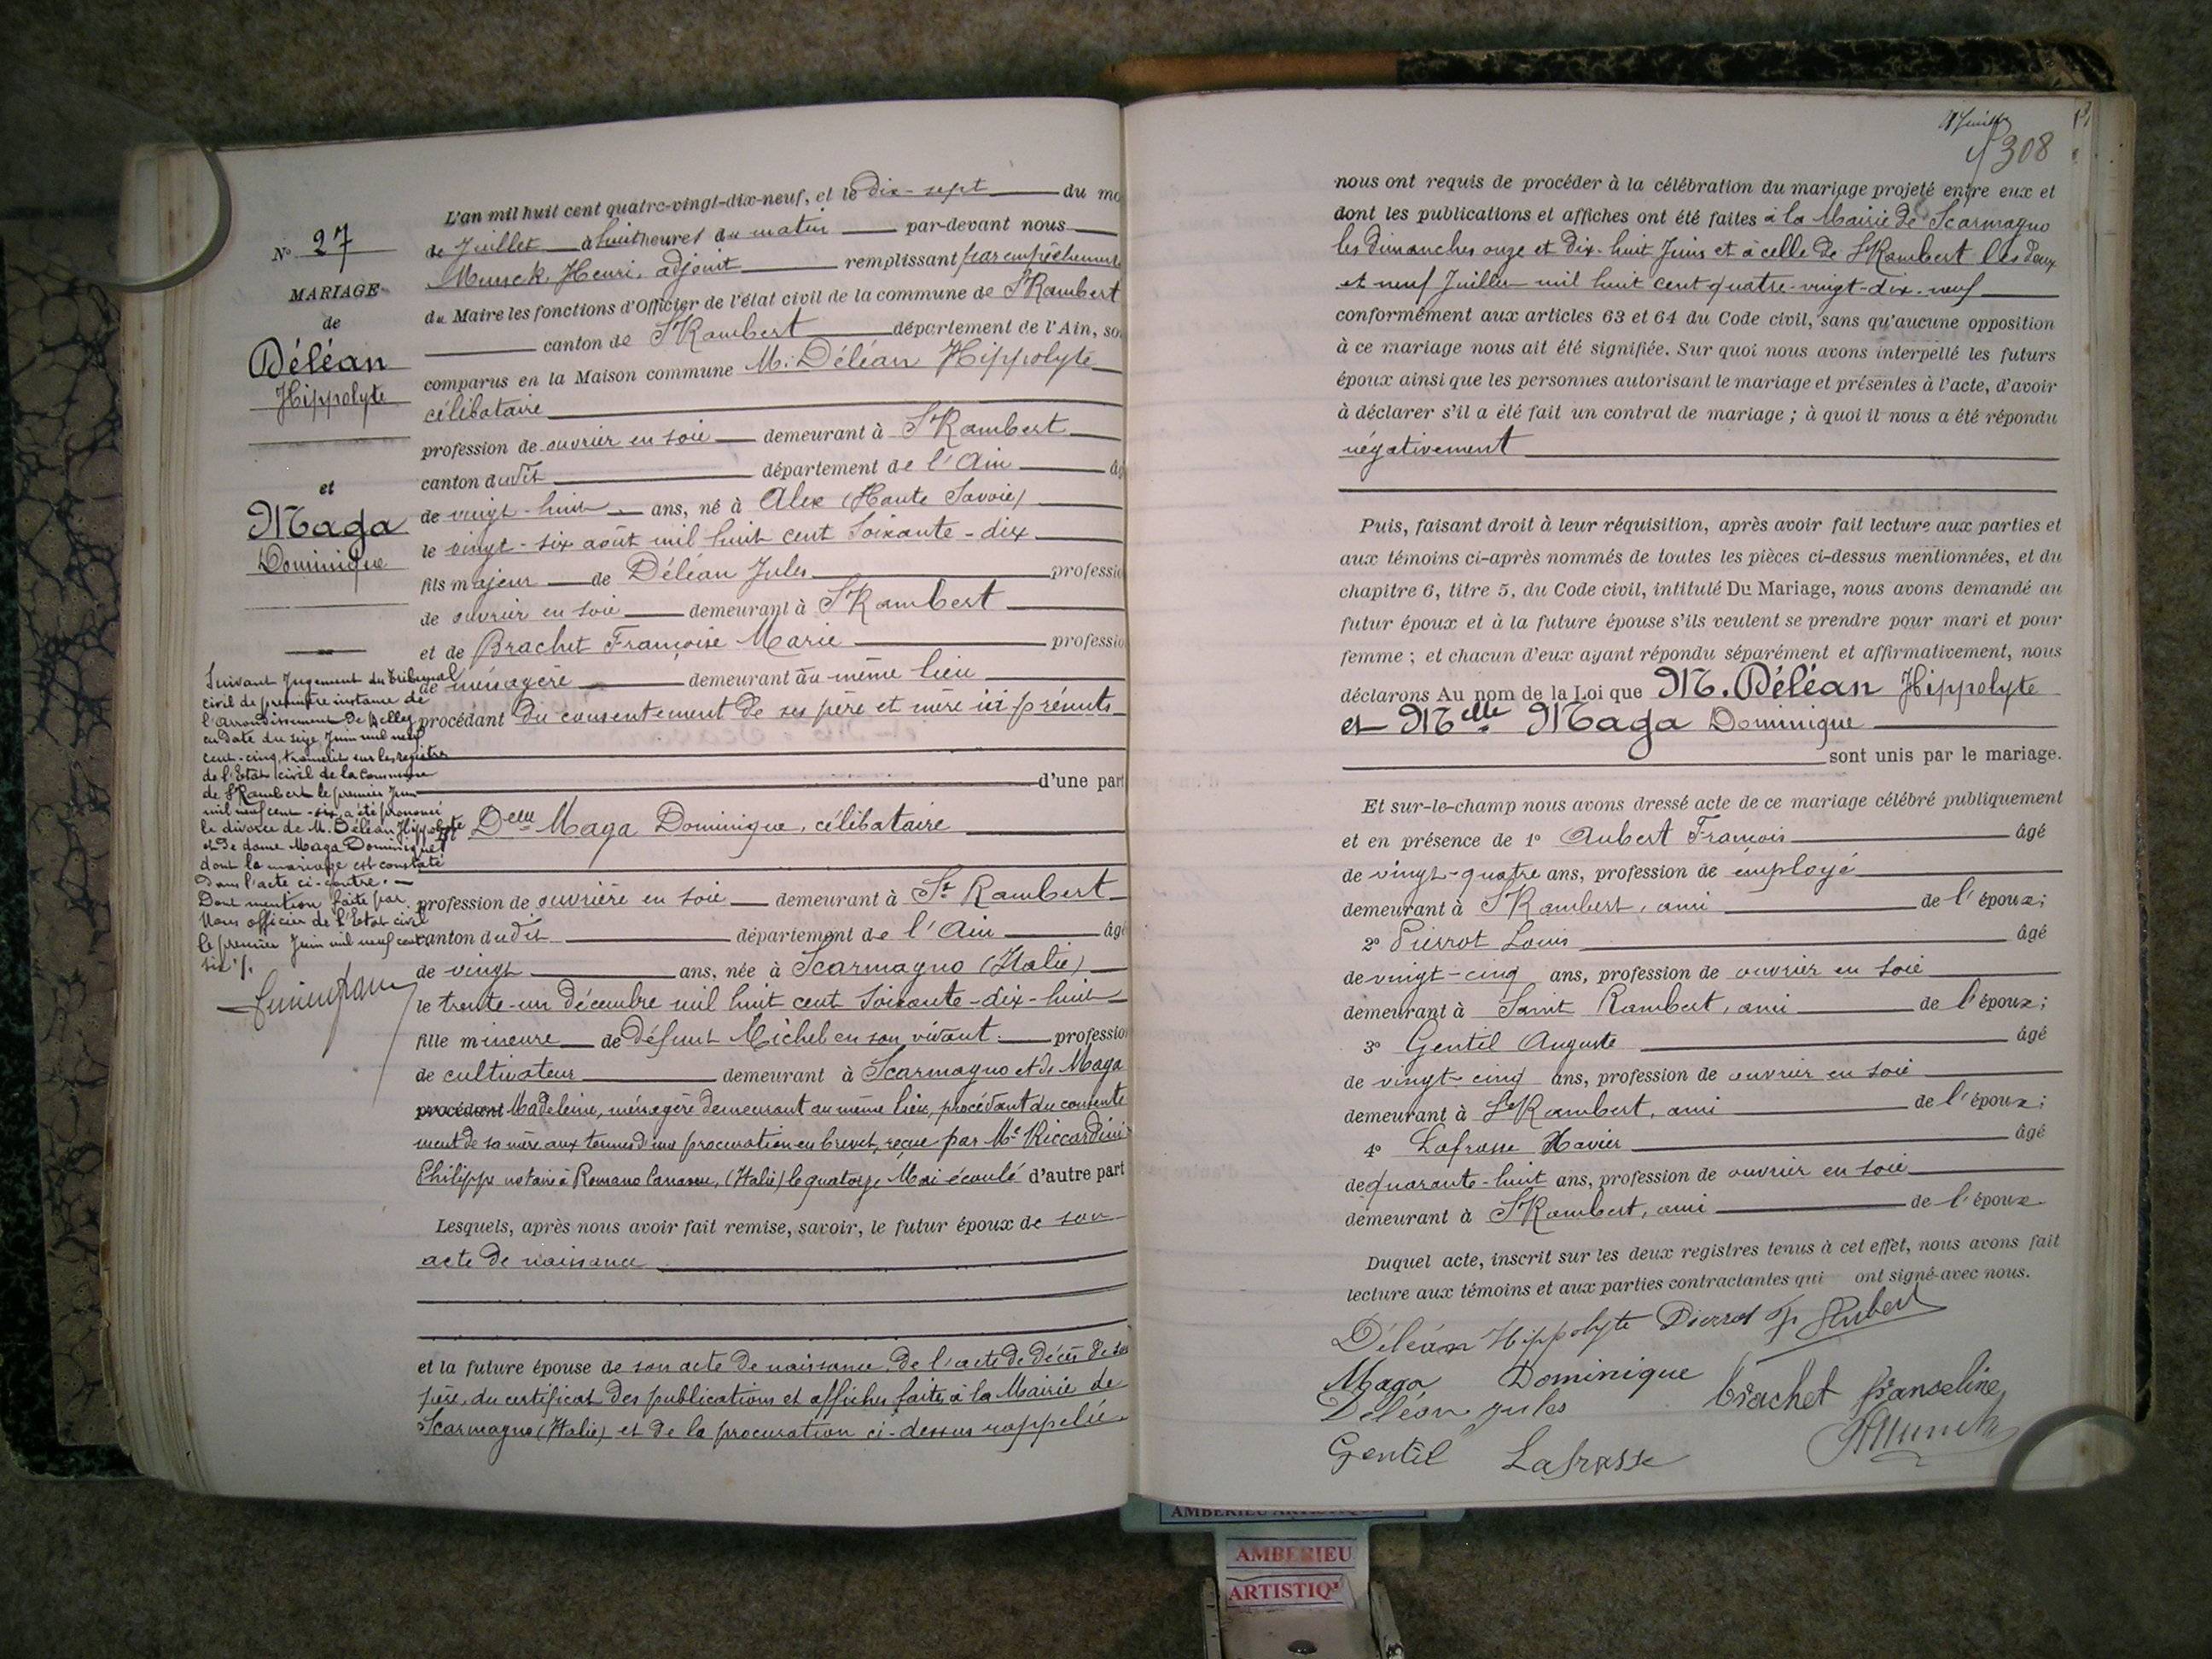 N° 27
MARIAGE
de
Déléan
Hippolyte
et
Maga
Dominique
Suivant Jugement du Tribunal
civil de première instance de
l'arrondissement de Belley
en date du seize Juin mil neuf
cent-cinq, transcrit sur les registres
de l'Etat civil de la Commune
de St Rambert le premier Juin
mil neuf cent-six, a été prononcé
le divorce de M. Déléan Hippolyte
et de dame Maga Dominique
dont le mariage est constaté
dans l'acte ci-contre. —
Dont mention faite par
Nous officier de l'Etat civil
le premier Juin mil neuf cent
six
L'an mil huit cent quatre-vingt-dix-neuf, et le dix-sept du mo
de Juillet à huit heures du matin par-devant nous
Munck Henri, adjoint remplissant par empêchement
du Maire les fonctions d'Officier de l'état civil de la commune de St Rambert
canton de St Rambert département de l'Ain, so
comparus en la Maison commune M. Déléan Hippolyte
célibataire
profession de ouvrier en soie demeurant à St Rambert
canton dudit département de l'Ain âg
de vingt-huit ans, né à Alex (Haute Savoie)
le vingt-six août mil huit cent soixante-dix
fils majeur de Déléan Jules professio
de ouvrier en soie demeurant à St Rambert
et de Brachet Françoise Marie professio
de ménagère demeurant au même lieu
procédant du consentement de ses père et mère ici présents
d'une part
et Delle Maga Dominique, célibataire
profession de ouvrière en soie demeurant à St Rambert
canton dudit département de l'Ain âgé
de vingt ans, née à Scarmagno (Italie)
le trente-un décembre mil huit cent soixante-dix-huit
fille mineure de défunt Michel en son vivant profession
de cultivateur demeurant à Scarmagno et de Maga
procédant Madeleine, ménagère demeurant au même lieu, procédant du consente
ment de sa mère aux termes d'une procuration en brevet, reçue par Me Riccardini
Philippe notaire à Romano Canavese, (Italie) le quatorze Mai écoulé d'autre part
Lesquels, après nous avoir fait remise, savoir, le futur époux de son
acte de naissance
et la future épouse de son acte de naissance, de l'acte de décès de son
père, du certificat des publications et affiches faites à la Mairie de
Scarmagno (Italie) et de la procuration ci-dessus rappelée.
308
nous ont requis de procéder à la célébration du mariage projeté entre eux et
dont les publications et affiches ont été faites à la Mairie de Scarmagno
les dimanches onze et dix-huit Juin et à celle de St Rambert les deux
et neuf Juillet mil huit cent quatre-vingt-dix-neuf
conformément aux articles 63 et 64 du Code civil, sans qu'aucune opposition
à ce mariage nous ait été signifiée. Sur quoi nous avons interpellé les futurs
époux ainsi que les personnes autorisant le mariage et présentes à l'acte, d'avoir
à déclarer s'il a été fait un contrat de mariage ; à quoi il nous a été répondu
négativement
Puis, faisant droit à leur réquisition, après avoir fait lecture aux parties et
aux témoins ci-après nommés de toutes les pièces ci-dessus mentionnées, et du
chapitre 6, titre 5, du Code civil, intitulé Du Mariage, nous avons demandé au
futur époux et à la future épouse s'ils veulent se prendre pour mari et pour
femme ; et chacun d'eux ayant répondu séparément et affirmativement, nous
déclarons Au nom de la Loi que M. Déléan Hippolyte
et Melle Maga Dominique
sont unis par le mariage.
Et sur-le-champ nous avons dressé acte de ce mariage célébré publiquement
et en présence de 1° Aubert François âgé
de vingt-quatre ans, profession de employé
demeurant à St Rambert, ami de l'époux;
2° Pierrot Louis âgé
de vingt-cinq ans, profession de ouvrier en soie
demeurant à Saint Rambert, ami de l'époux;
3° Gentil Auguste âgé
de vingt-cinq ans, profession de ouvrier en soie
demeurant à St Rambert, ami de l'époux;
4° Lafrasse Xavier âgé
de quarante-huit ans, profession de ouvrier en soie
demeurant à St Rambert, ami de l'époux
Duquel acte, inscrit sur les deux registres tenus à cet effet, nous avons fait
lecture aux témoins et aux parties contractantes qui ont signé avec nous.
Déléan Hippolyte Pierrot F Aubert
Maga Dominique Brachet franseline
Déléan jules
Gentil Lafrasse HMunck
AMBERIEU
ARTISTIQ